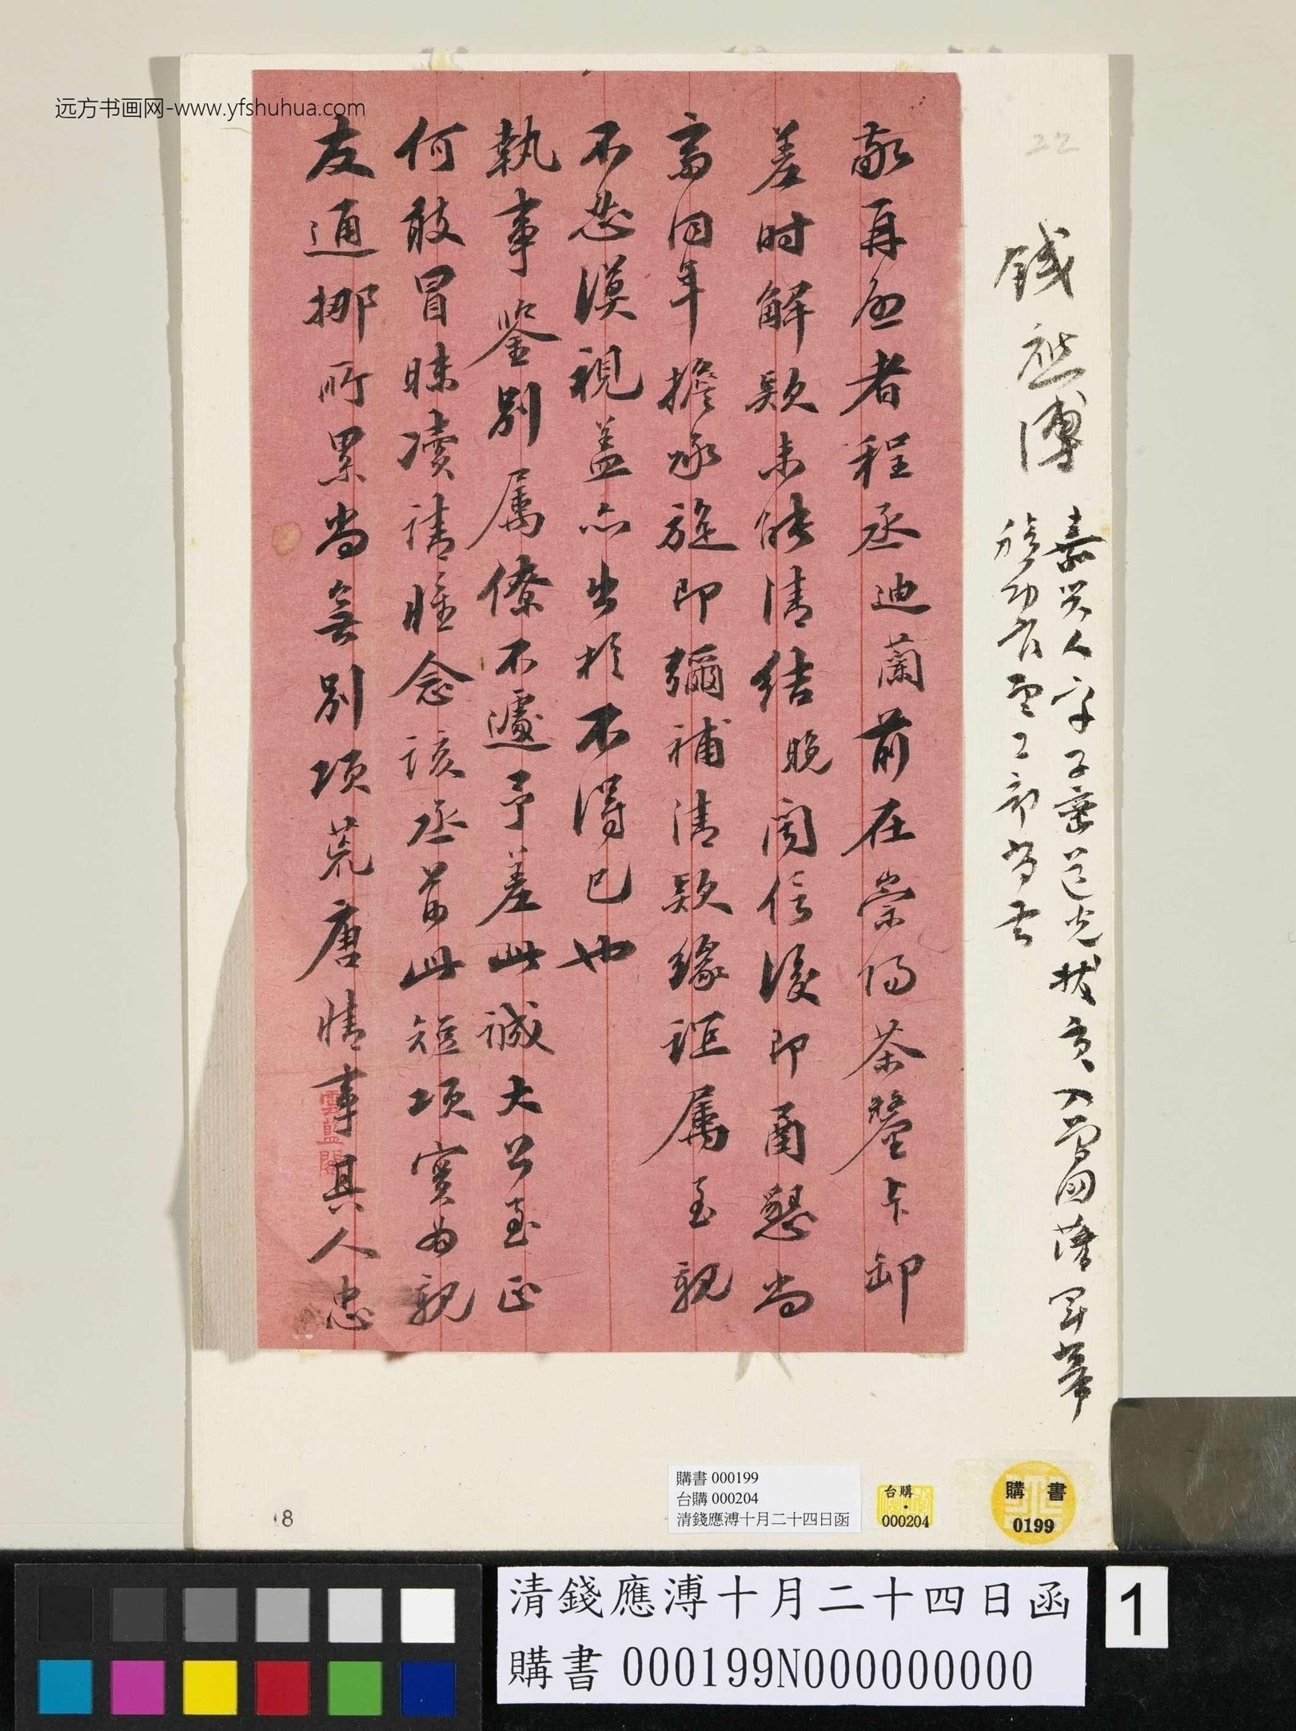 远方书画网-www.yfshuhua.com
22
錢應溥
嘉興人字子密道光拔貢入曾國藩軍幕
積功官至工部尚书
敬再啟者程丞迪蘭前在崇陽茶釐卡卸
差时解款未能清結晚闻信後即函懇尚
斋同年擔承旋即彌補清款缘誼属至親
不忍漠視盖亦出於不得已也
執事鉴别属僚不遽予差此誠大公至正
何敢冒昧瀆請睢念该丞前此短項实为親
友通挪所累尚無别項荒唐情事其人忠
雲藍閣
購書 000199
台購 000204
清錢應溥十月二十四日函
台購
000204
購書
0199
18
清錢應溥十月二十四日函
購書 000199N000000000
1